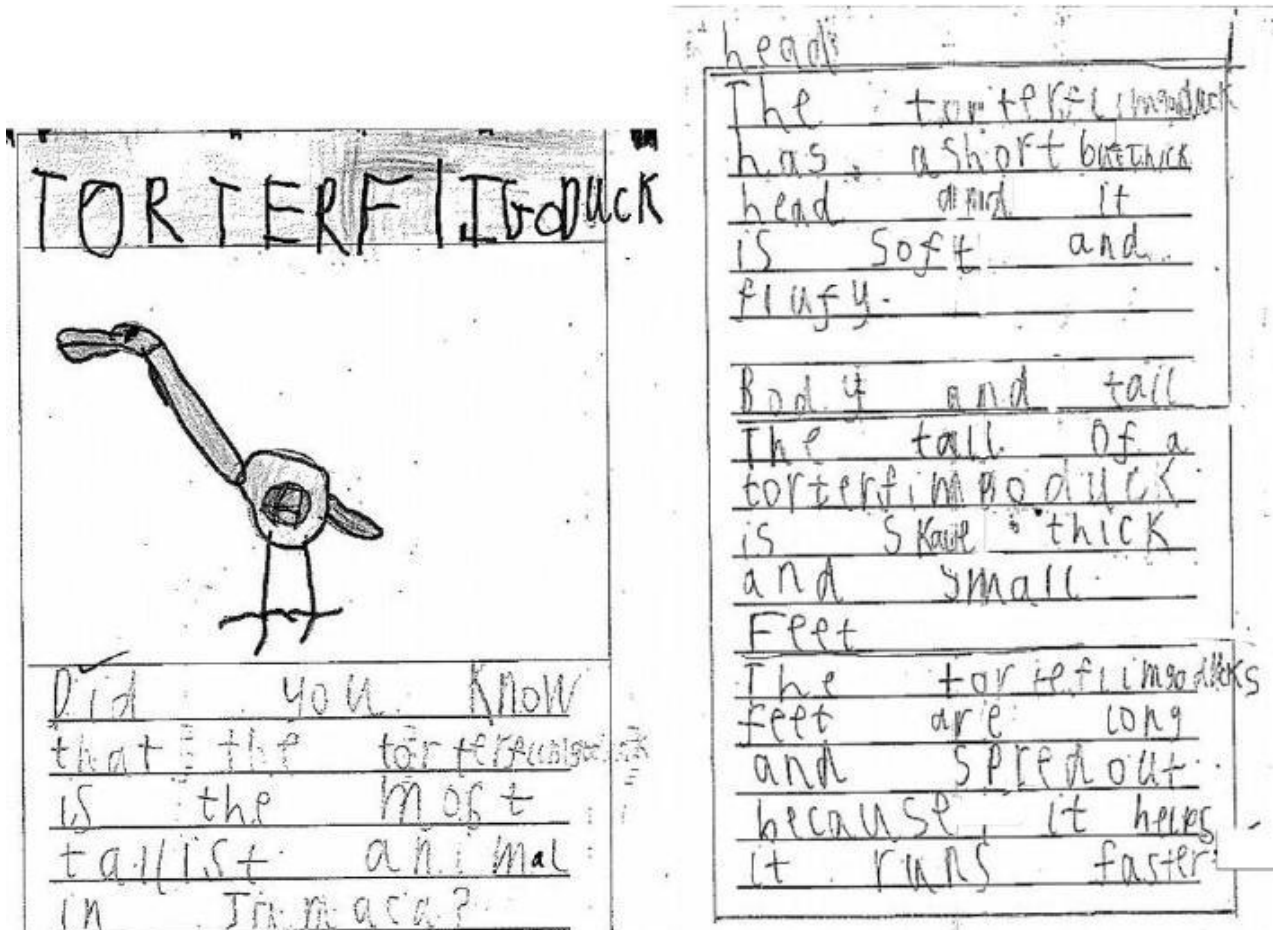 TORTERFLIGODUCK
Did you know
that the
is the most
tallist animal
in Jamaca?
head
The torterflimgoduck
has a short but thick
head and it
is soft and
flufy.
Body and tail
The tail of a
torterfimgoduck
is thick
and small
Feet
The torteflimgoducks
feet are long
and spredout
because it helps
it runs faster